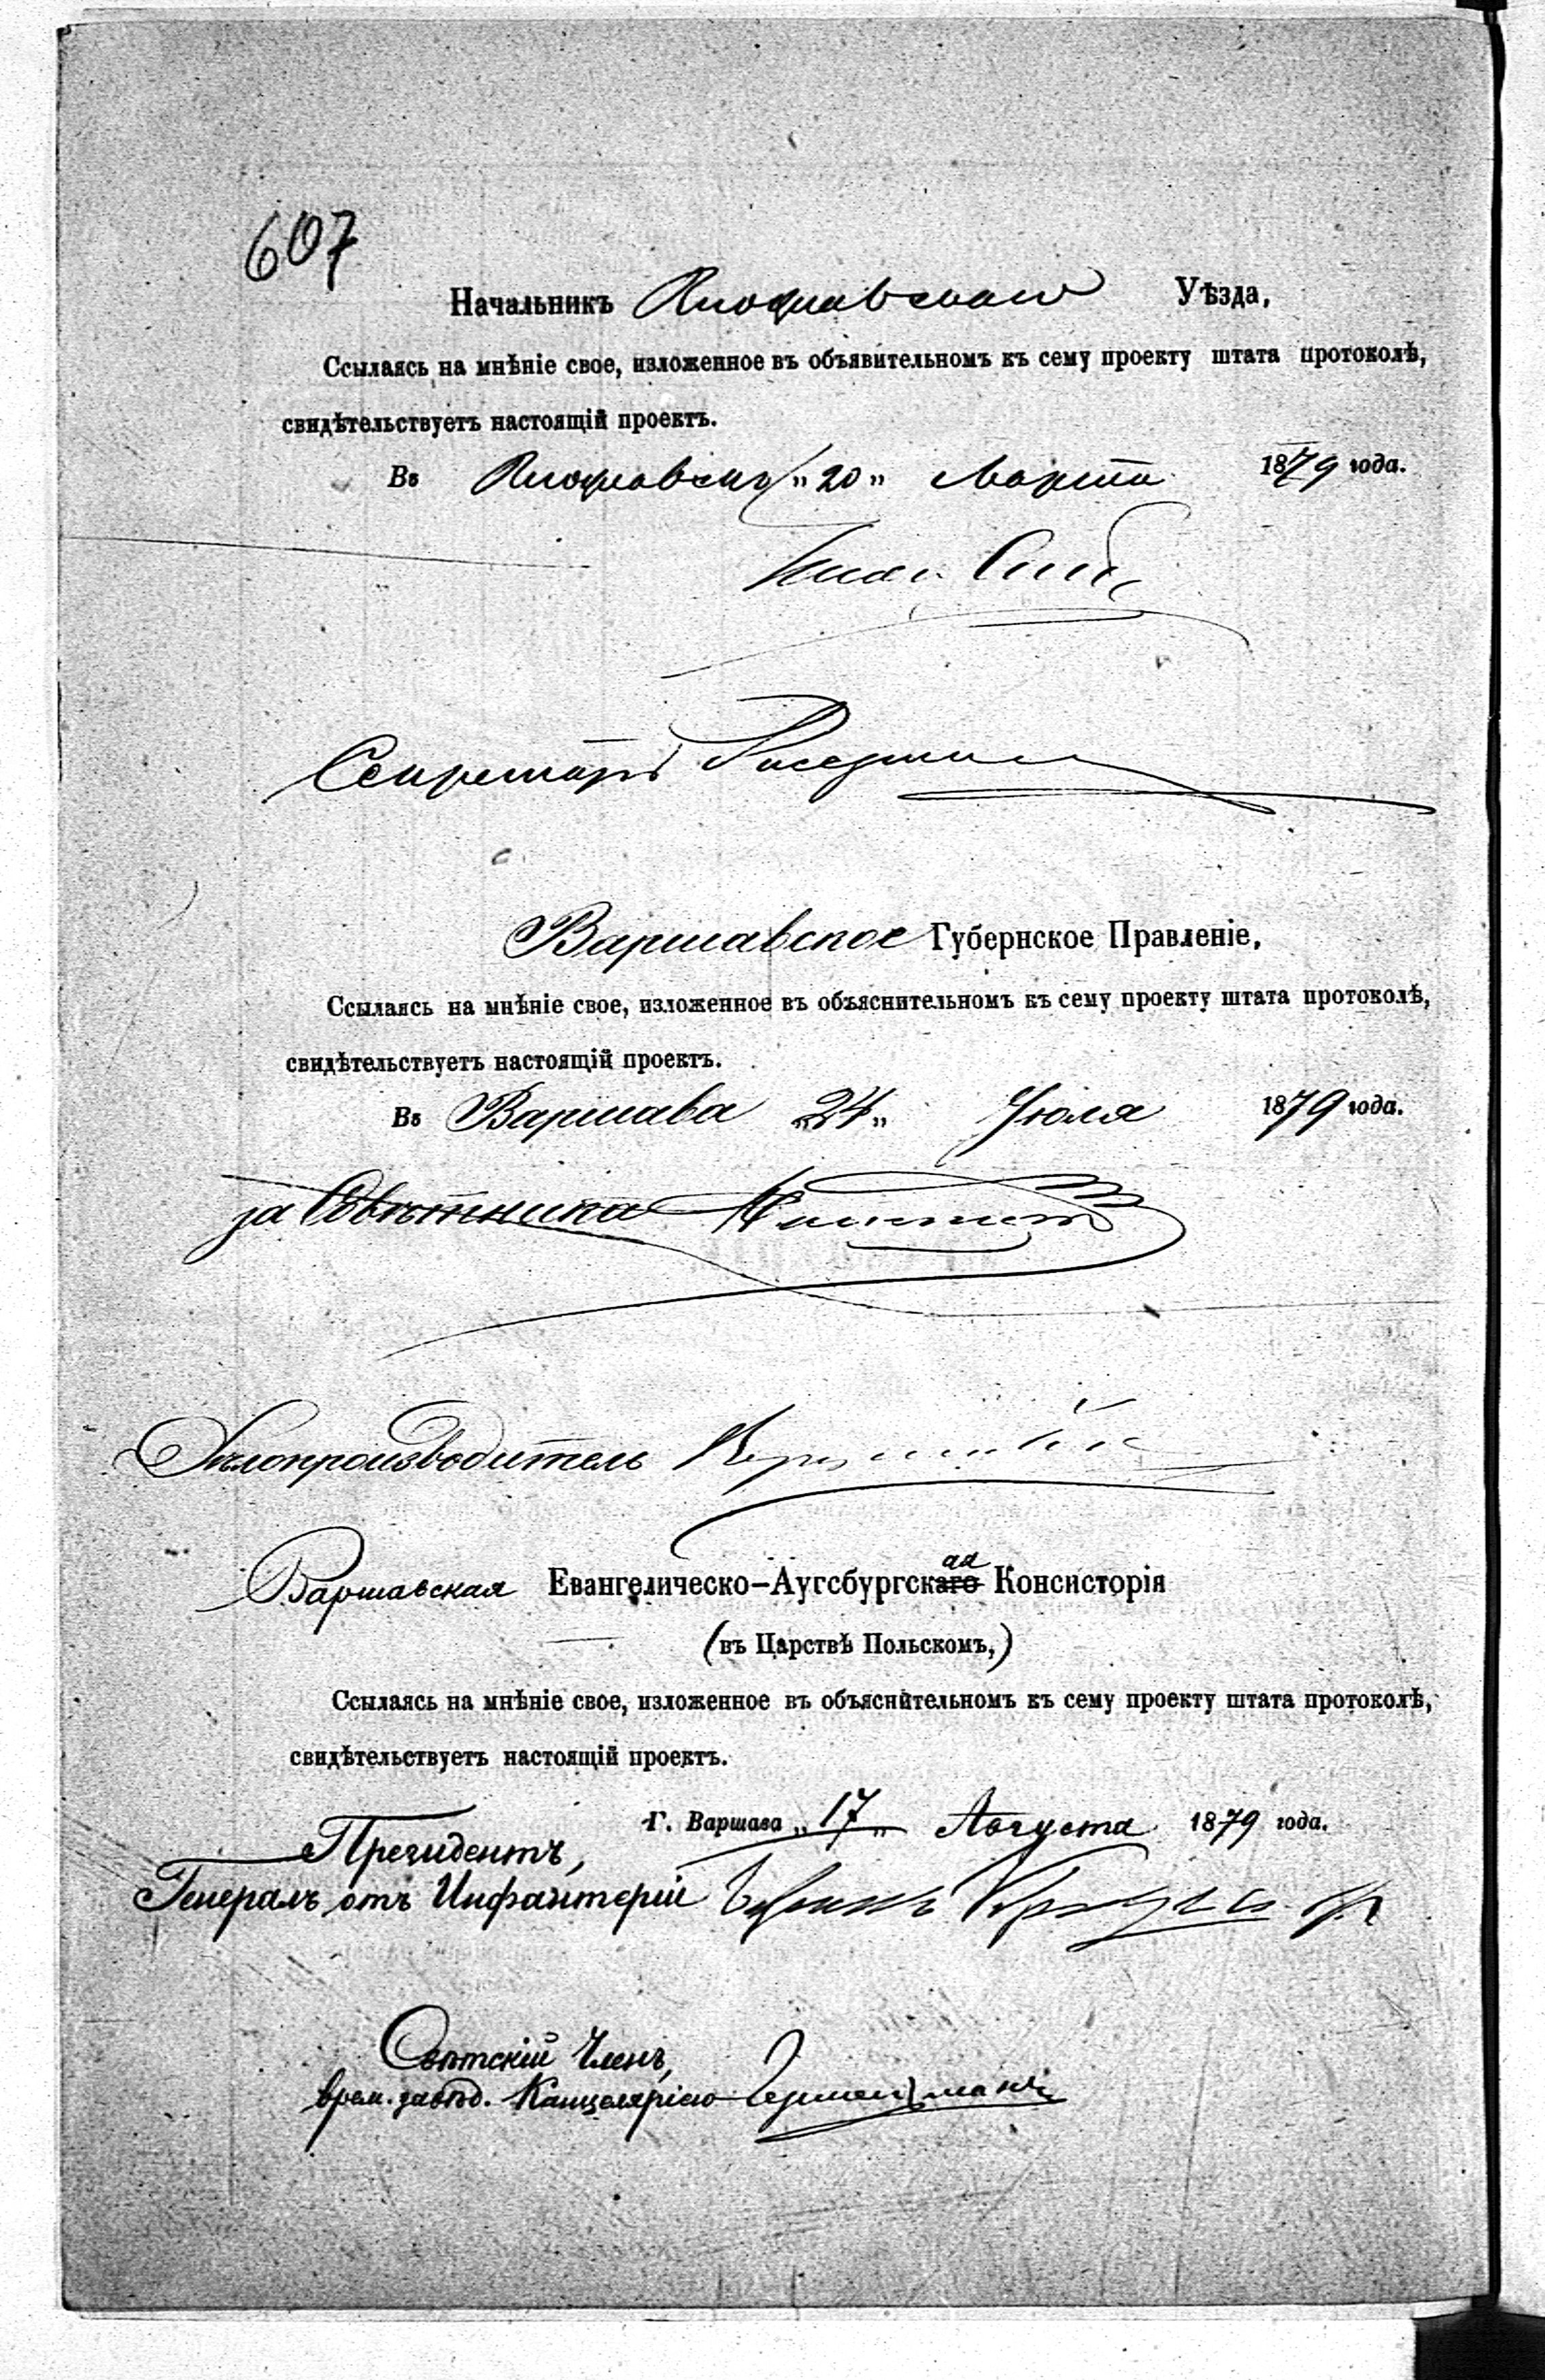 607
Начальникъ Уѣзда,
Ссылаясь на мнѣніе свое, изложенное въ объявительномъ къ сему проекту штата протоколѣ,
свидѣтельствуетъ настоящій проектъ.
Въ „20„ Марта 1879 года.
Секретарь
Варшавское Губернское Правленіе,
Ссылаясь на мнѣніе свое, изложенное въ объяснительномъ къ сему проекту штата протоколѣ,
свидѣтельствуетъ настоящій проектъ.
Въ Варшава „24„ Іюля 1879 года.
за Совѣтника
Дѣлопроизводитель
Варшавская Евангелическо-Аугсбургская Консисторія
(въ Царствѣ Польскомъ,)
Ссылаясь на мнѣніе свое, изложенное въ объяснительномъ къ сему проекту штата протоколѣ,
свидѣтельствуетъ настоящій проектъ.
Г. Варшава „17„ Августа 1879 года.
Президентъ,
Генералъ отъ Инфантеріи
Свѣтскій Членъ,
врем. завѣд. Канцеляріею